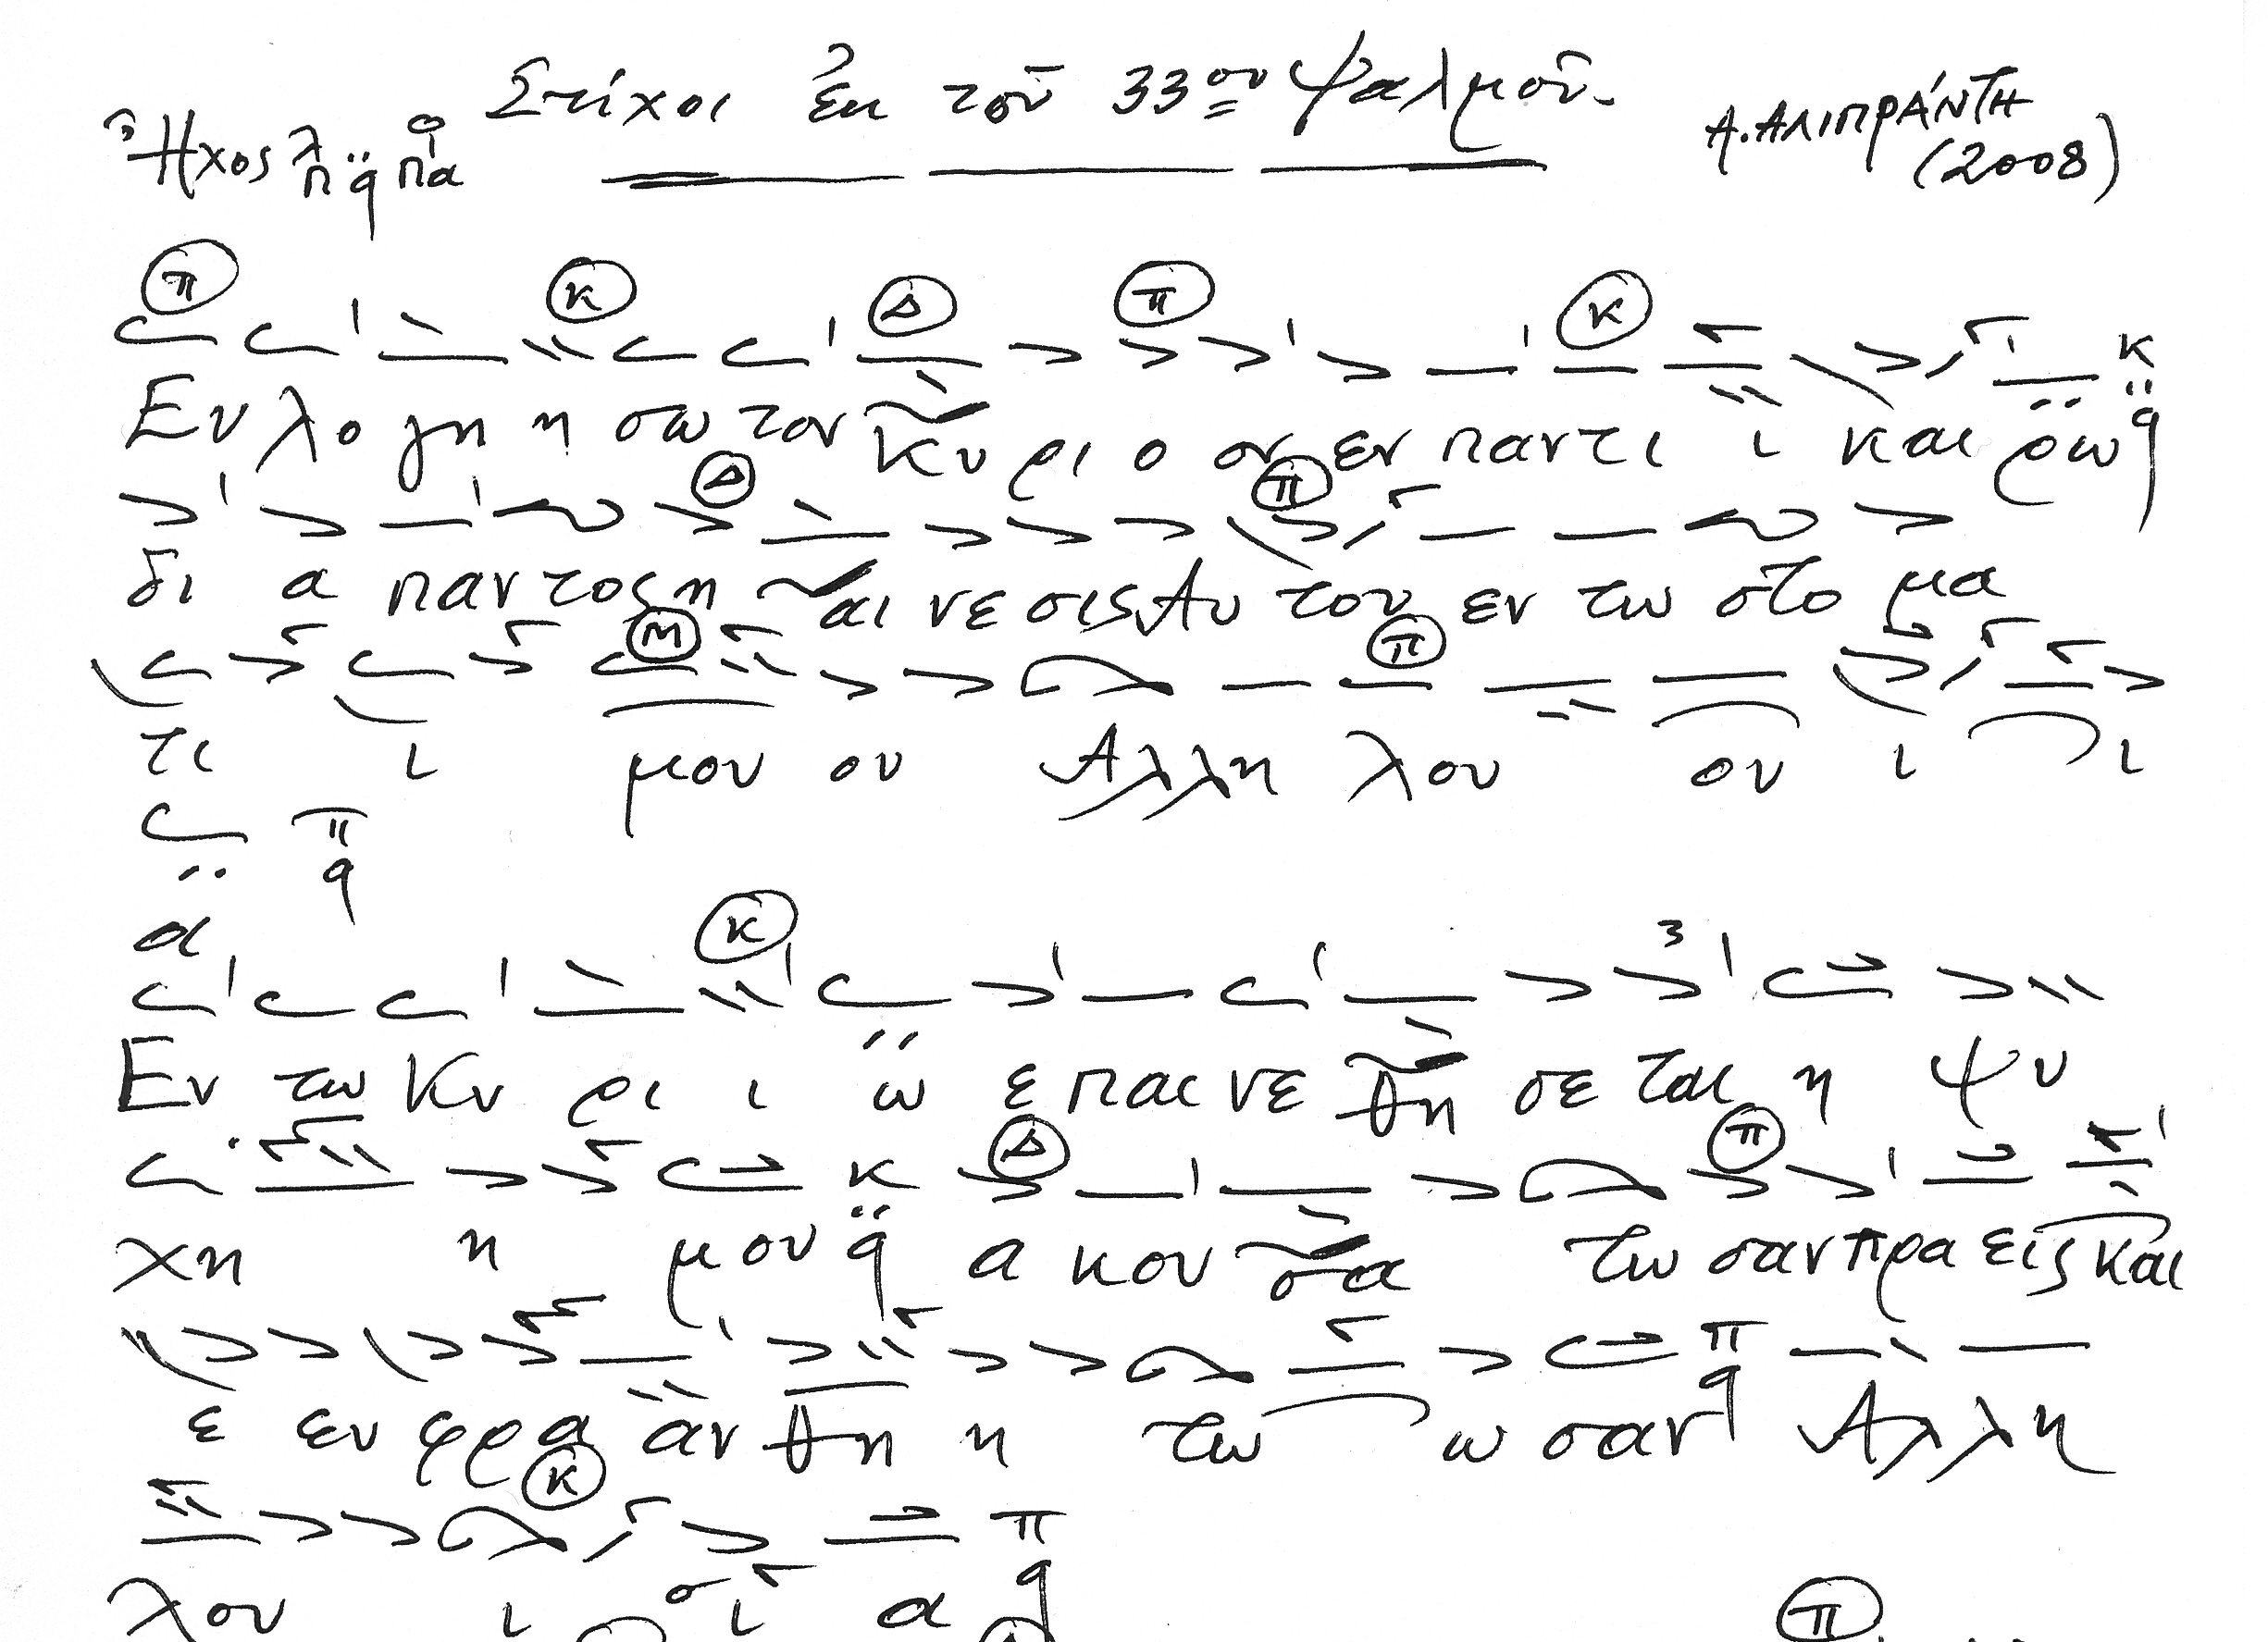 Στίχοι ἐκ τοῦ 33ου Ψαλμοῦ.
Ἦχος λ π ᾳ q Πα
Α. ΑΛΙΠΡΑΝΤΗ
(2008)
π κ Δ π κ κ
Ευ λο γη η σω τον Κυ ρι ο ον εν παντι ι και ρω q
Δ π
δι α παντος η αι νε σις Αυ του εν τω στο μα
Μ π
τι ι μου ου Αλλη λου ου ι ι
π
q
α
κ 3
Εν τω Κυ ρι ι ω ε παι νε θη σε ται η ψυ
κ Δ π
χη η μου q α κου σα τω σαν πρα εις και
π
ε ευ φρα αν θη η τω ω σαν q Αλλη
κ π
λου ι ι α q
π